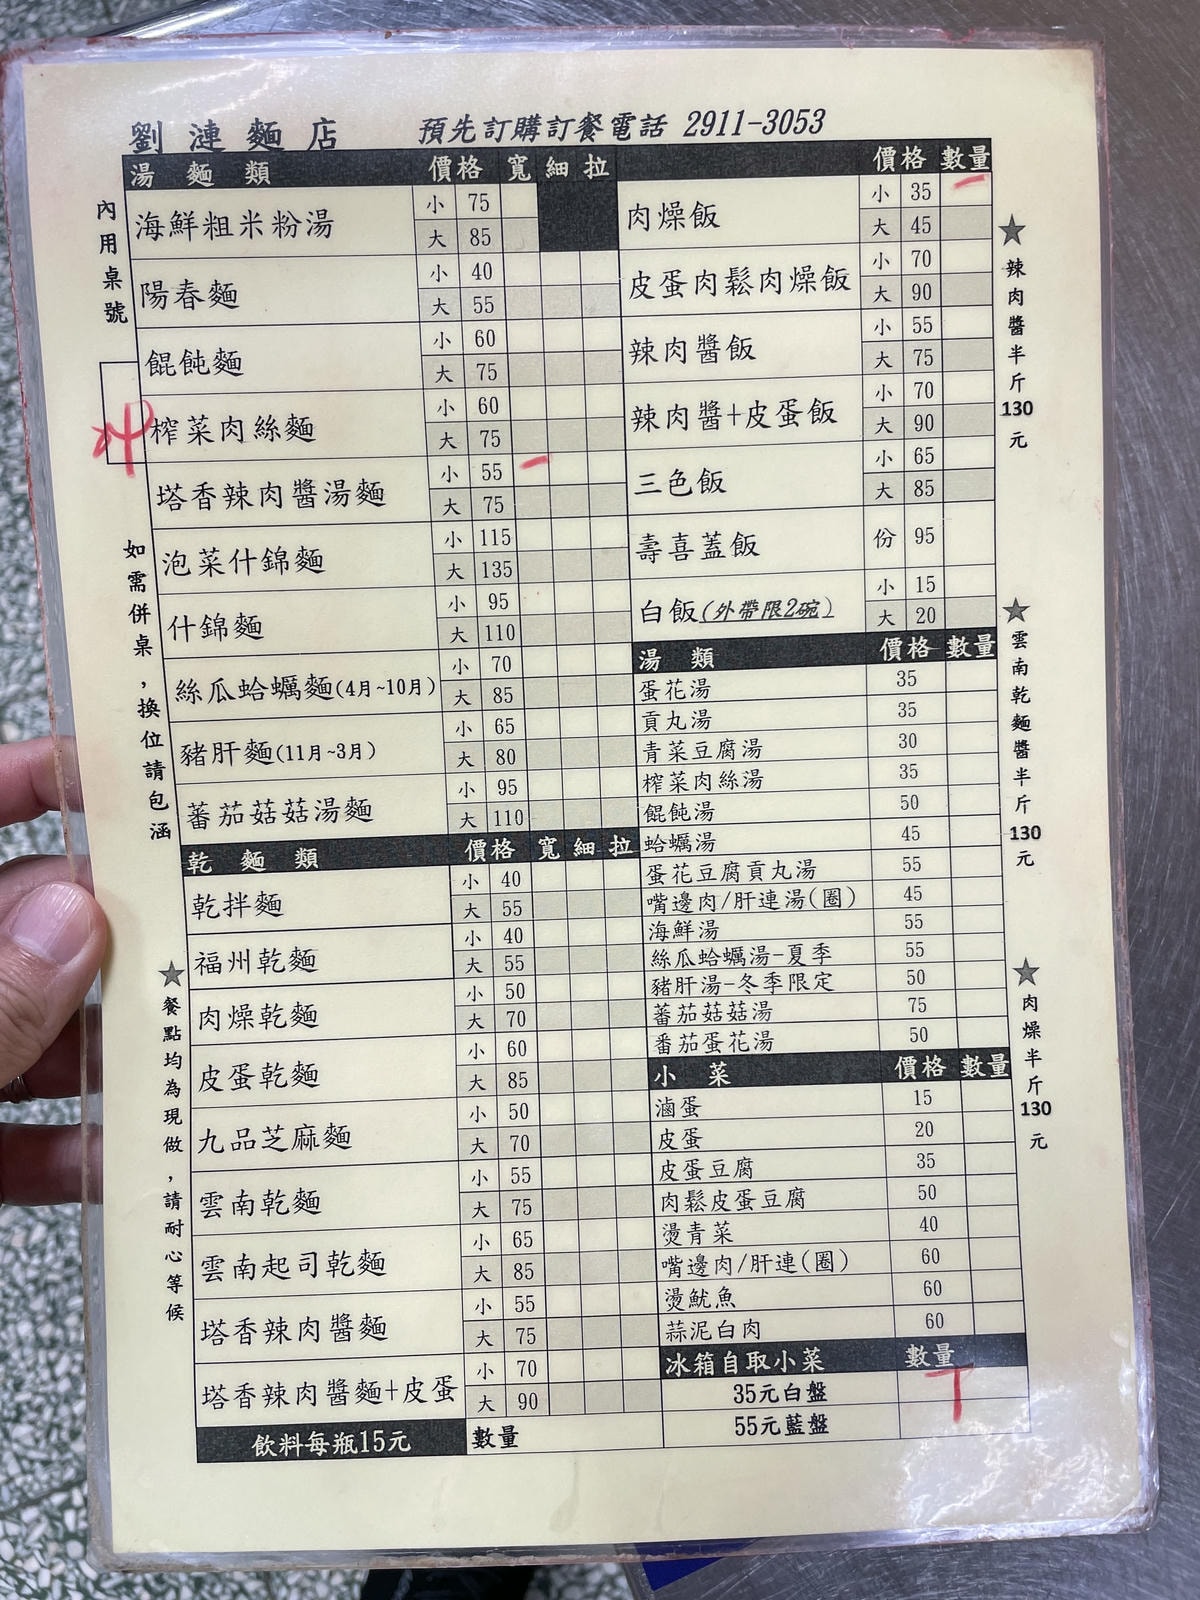 劉漣麵店 預先訂購訂餐電話 2911-3053
湯麵類 價格 寬 細 拉
海鮮粗米粉湯 小 75
大 85
陽春麵 小 40
大 55
餛飩麵 小 60
大 75
榨菜肉絲麵 小 60
大 75
塔香辣肉醬湯麵 小 55 一
大 75
泡菜什錦麵 小 115
大 135
什錦麵 小 95
大 110
絲瓜蛤蠣麵(4月~10月) 小 70
大 85
豬肝麵(11月~3月) 小 65
大 80
蕃茄菇菇湯麵 小 95
大 110
乾麵類 價格 寬 細 拉
乾拌麵 小 40
大 55
福州乾麵 小 40
大 55
肉燥乾麵 小 50
大 70
皮蛋乾麵 小 60
大 85
九品芝麻麵 小 50
大 70
雲南乾麵 小 55
大 75
雲南起司乾麵 小 65
大 85
塔香辣肉醬麵 小 55
大 75
塔香辣肉醬麵+皮蛋 小 70
大 90
飲料每瓶15元 數量
價格 數量
肉燥飯 小 35 一
大 45
皮蛋肉鬆肉燥飯 小 70
大 90
辣肉醬飯 小 55
大 75
辣肉醬+皮蛋飯 小 70
大 90
三色飯 小 65
大 85
壽喜蓋飯 份 95
白飯(外帶限2碗) 小 15
大 20
湯類 價格 數量
蛋花湯 35
貢丸湯 35
青菜豆腐湯 30
榨菜肉絲湯 35
餛飩湯 50
蛤蠣湯 45
蛋花豆腐貢丸湯 55
嘴邊肉/肝連湯(圈) 45
海鮮湯 55
絲瓜蛤蠣湯-夏季 55
豬肝湯-冬季限定 50
蕃茄菇菇湯 75
蕃茄蛋花湯 50
小菜 價格 數量
滷蛋 15
皮蛋 20
皮蛋豆腐 35
肉鬆皮蛋豆腐 50
燙青菜 40
嘴邊肉/肝連(圈) 60
燙魷魚 60
蒜泥白肉 60
冰箱自取小菜 數量
35元白盤
55元藍盤
內用桌號
如需併桌,換位請包涵
★餐點均為現做,請耐心等候
★辣肉醬半斤130元
★雲南乾麵醬半斤130元
★肉燥半斤130元